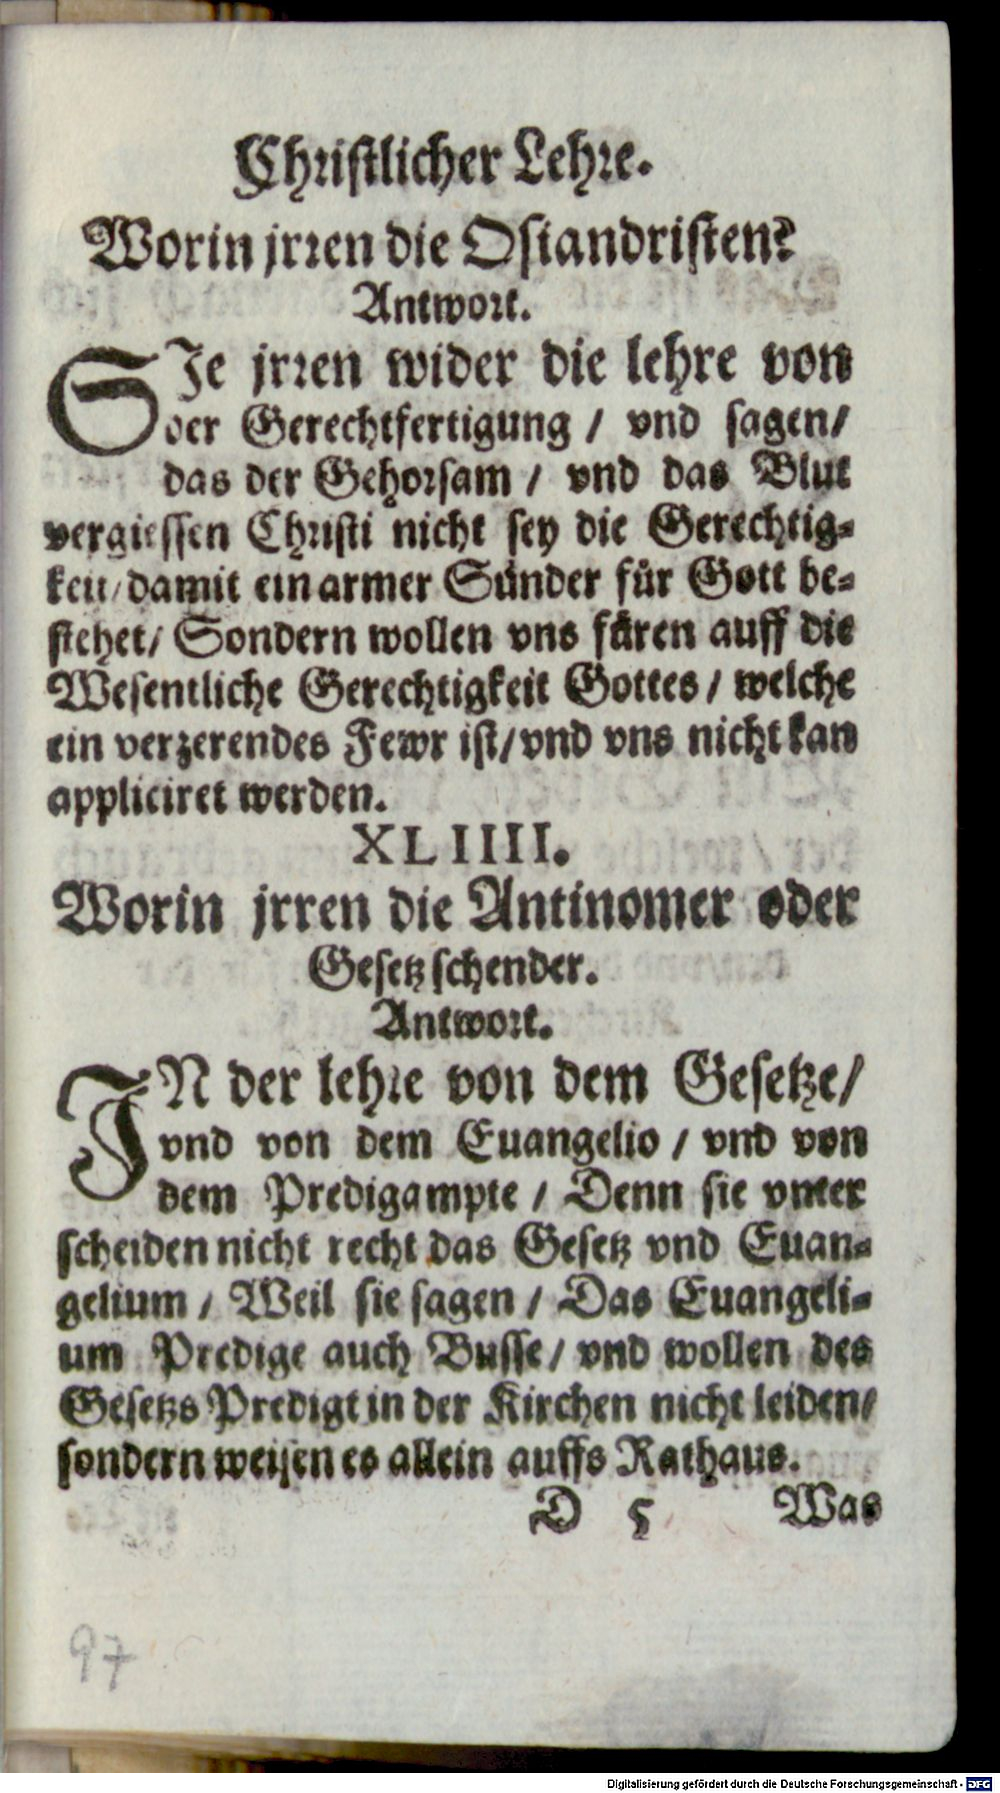 Christlicher Lehre.
Worin jrren die Osiandristen?
Antwort.
SJe jrren wider die lehre von
der Gerechtfertigung / vnd sagen/
das der Gehorsam / vnd das Blut
vergiessen Christi nicht sey die Gerechtig-
keit/damit ein armer Sünder für Gott be-
stehet/ Sondern wollen vns füren auff die
Wesentliche Gerechtigkeit Gottes / welche
ein verzerendes Fewr ist/vnd vns nicht kan
appliciret werden.
XLIIII.
Worin jrren die Antinomer oder
Gesetz schender.
Antwort.
JN der lehre von dem Gesetze/
vnd von dem Euangelio / vnd von
dem Predigampte / Denn sie vnter
scheiden nicht recht das Gesetz vnd Euan-
gelium / Weil sie sagen / Das Euangeli-
um Predige auch Busse/ vnd wollen des
Gesetzs Predigt in der Kirchen nicht leiden/
sondern weisen es allein auffs Rathaus.
D 5 Was
97
Digitalisierung gefördert durch die Deutsche Forschungsgemeinschaft - DFG